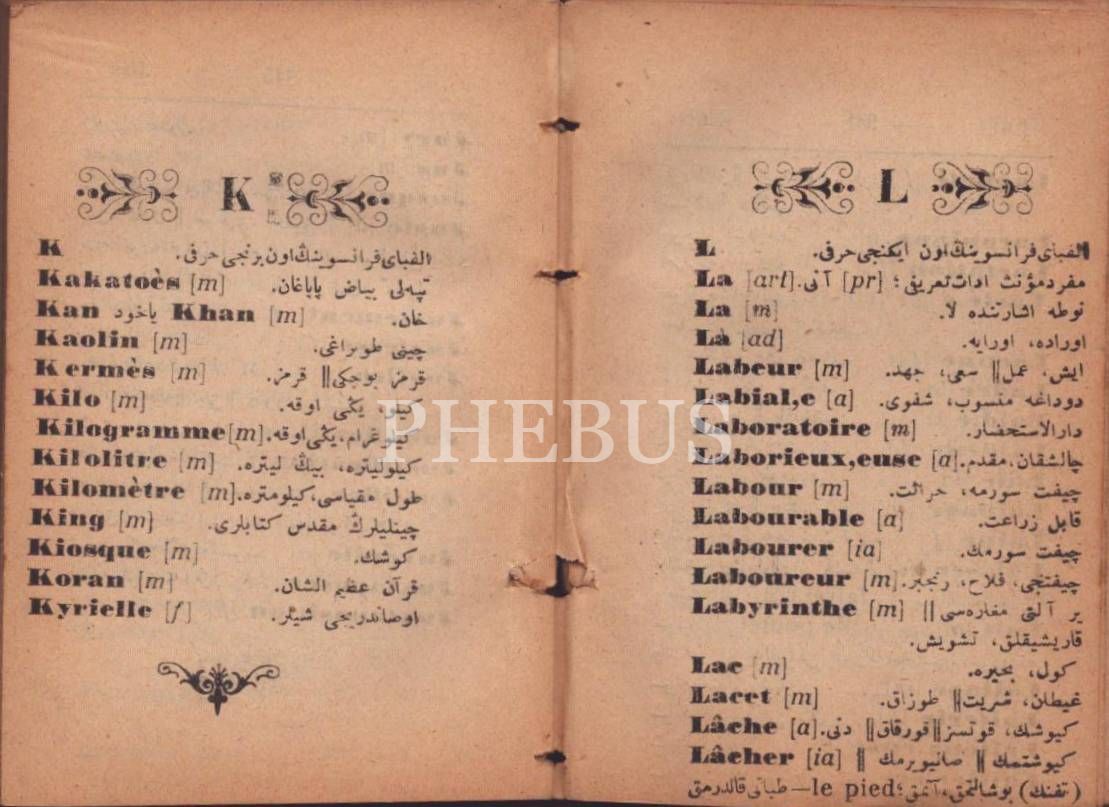 K
K الفبای فرانسوینڭ اون برنجی حرفی.
Kakatoès [m] تپه‌لی بیاض پاپاغان.
Kan یاخود Khan [m] خان.
Kaolin [m] چینی طوپراغی.
Kermès [m] قرمز بوجکی || قرمز.
Kilo [m] کیلو، یڭی اوقه.
Kilogramme [m] کیلوغرام، یڭی اوقه.
Kilolitre [m] کیلولیتره، بیڭ لیتره.
Kilomètre [m] طول مقیاسی، کیلومتره.
King [m] چینلیلرڭ مقدس کتابلری.
Kiosque [m] کوشك.
Koran [m] قرآن عظیم الشان.
Kyrielle [f] اوصاندریجی شیئر.
L
L الفبای فرانسوینڭ اون ایکنجی حرفی.
La [art] مفرد مؤنث ادات تعریفی؛ [pr] آنی.
La [m] نوطه اشارتنده لا.
Là [ad] اوراده، اورایه.
Labeur [m] ایش، عمل || سعی، جهد.
Labial,e [a] دوداغه منسوب، شفوی.
Laboratoire [m] دارالاستحضار.
Laborieux,euse [a] چالشقان، مقدم.
Labour [m] چیفت سورمه، حراثت.
Labourable [a] قابل زراعت.
Labourer [ia] چیفت سورمك.
Laboureur [m] چیفتجی، فلاح، رنجبر.
Labyrinthe [m] یر آلتی مغاره‌سی ||
قاریشیقلق، تشویش.
Lac [m] کول، بحیره.
Lacet [m] غیطان، شریت || طوزاق.
Lâche [a] کیوشك، قوتسز || قورقاق || دنی.
Lâcher [ia] کیوشتمك || صالیویرمك ||
(تفنك) بوشالتمق، آتمق؛ le pied— طبانی قالدرمق
PHEBUS